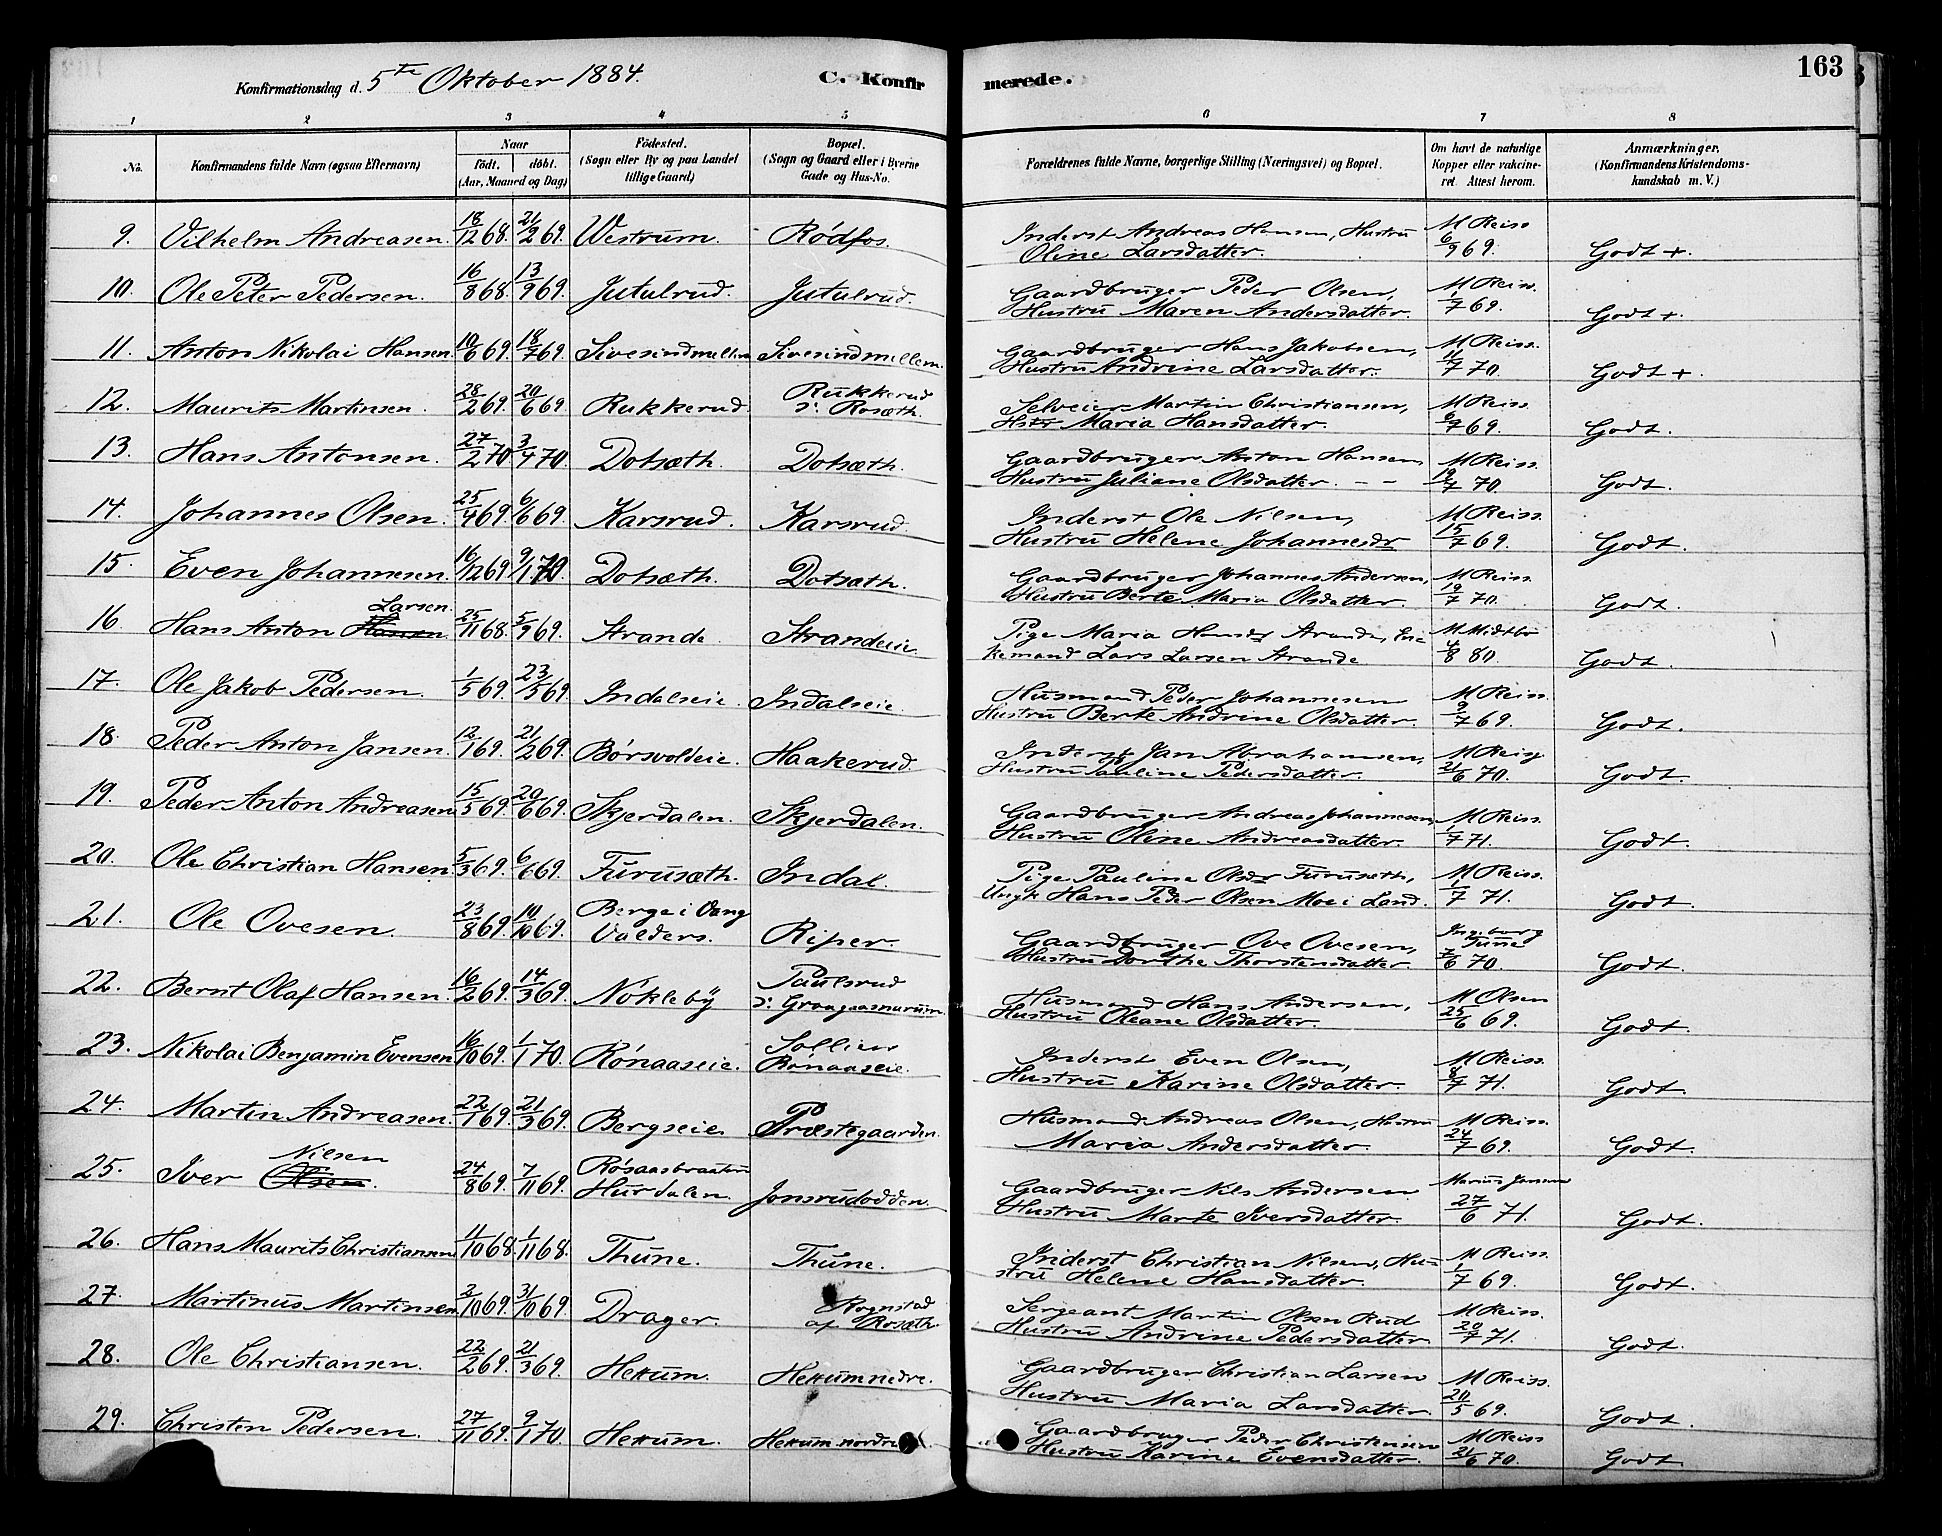 Konfirmationsdag d. 5te Oktober 1884. C. Konfirmerede. 163
1 2 3 4 5 6 7 8
No. Konfirmandens fulde Navn (ogsaa Efternavn) Naar födt. döbt. (Aar, Maaned og Dag) Födested. (Sogn eller By og paa Landet tillige Gaard.) Bopæl. (Sogn og Gaard eller i Byerne Gade og Hus-No. Forældrenes fulde Navne, borgerlige Stilling (Næringsvei) og Bopæl. Om havt de naturlige Kopper eller vakcineret. Attest herom. Anmærkninger. (Konfirmandens Kristendomskundskab m. V.)
9. Vilhelm Andreasen. 18/12 68. 21/2 69. Westrum. Rödfos. Inderst Andreas Hansen, Hustru M Reiss
Oline Larsdatter. 6/9 69. Godt +.
10. Ole Peter Pedersen. 16/8 68. 13/9 69. Jutulrud. Jutulrud. Gaardbruger Peder Olsen, M Reiss.
Hustru Maren Andersdatter. 1/7 69. Godt +
11. Anton Nikolai Hansen 10/6 69. 18/7 69. Sivesindmellem Sivesindmellem. Gaardbruger Hans Jakobsen, M Reiss.
Hustru Andrine Larsdatter. 11/7 70. Godt +.
12. Maurits Martinsen. 28/2 69. 20/6 69 Rukkerud Rukkerud M Reiss.
Rosæth. Selveier Martin Christiansen,
Hstr Maria Hansdatter. 69. Godt.
13. Hans Antonsen. 27/2 70 3/4 70. Dotsæth. Dotsæth. Gaardbruger Anton Hansen, M Reiss.
Hustru Juliane Olsdatter. - - 19/7 70. Godt.
14. Johannes Olsen. 25/4 69. 6/6 69. Karsrud. Karsrud. Inderst Ole Nilsen, M Reiss.
Hustru Helene Johannesdr 15/7 69. Godt.
15. Even Johannesen. 16/12 69. 9/1 70. Dotsæth. Dotsæth. Gaardbruger Johannes Andersen, M Reiss.
Hustru Berte Maria Olsdatter. 19/7 70. Godt.
Larsen.
16. Hans Anton Hansen 25/11 68. 5/9 69. Strande. Strandeie. Pige Maria Hansdr Strande, En- M Midtbö
kemand Lars Larsen Strande 4/8 80. Godt.
17. Ole Jakob Pedersen. 1/5 69. 23/5 69. Indalseie. Indalseie. Husmand Peder Johannesen M Reiss.
Hustru Berte Andrine Olsdatter. 9/7 69. Godt.
18. Peder Anton Jansen. 12/1 69. 21/2 69. Börsvoldeie. Haakerud. Inderst Jan Abrahamsen, M Reiss
Hustru Pauline Pedersdatter. 21/6 70. Godt.
19. Peder Anton Andreasen 15/5 69. 20/6 69. Skjerdalen. Skjerdalen. Gaardbruger Andreas Johannesen, M Reiss.
Hustru Oline Andreasdatter. 1/7 71. Godt.
20. Ole Christian Hansen. 5/3 69. 6/6 69. Furusæth. Indal. Pige Pauline Olsdr Furusæth, M Reiss.
Ungk Hans Peder Olsen Moe i Land. 1/7 71. Godt.
21. Ole Ovesen. 23/8 69. 10/10 69. Berge i Vang Ingeborg
Valders. Riper. Gaardbruger Ove Ovesen, Tune
Hustru Dorthe Thorstensdatter. 7/6 70. Godt.
22. Bernt Olaf Hansen. 16/2 69. 14/3 69. Nökleby Paulsrud
Graagaasmurum. Husmand Hans Andersen, M Olsen
Hustru Oleane Olsdatter. 25/6 69. Godt.
23. Nikolai Benjamin Evensen 16/10 69. 1/1 70. Rönaaseie. Sollien
Rönaaseie. Inderst Even Olsen, M Reiss.
Hustru Karine Olsdatter. 8/7 71. Godt.
24. Martin Andreasen. 22/1 69. 21/3 69. Bergseie Præstegaarden. Husmand Andreas Olsen, Hustru M Reiss.
Maria Andersdatter. 24/7 69. Godt.
Nilsen
25. Iver Olsen. 24/8 69. 7/11 69. Rösaasbraaten
Hurdalen. Jonsrudodden. Gaardbruger Nils Andersen Marius Jansen
Hustru Marte Iversdatter. 27/6 71. Godt.
26. Hans Maurits Christiansen 11/10 68. 1/11 68. Thune. Thune. Inderst Christian Nilsen, Hu- M Reiss.
stru Helene Hansdatter. 1/7 69. Godt.
27. Martinus Martinsen 3/10 69. 31/10 69. Drager. Rognstad
af Rosæth. Sergeant Martin Olsen Rud M Reiss.
Hustru Andrine Pedersdatter 20/7 71. Godt.
28. Ole Christiansen. 22/2 69. 21/3 69. Hekum. Hekum nedre. Gaardbruger Christian Larsen M Reiss.
Hustru Maria Larsdatter. 20/5 69. Godt.
29. Christen Pedersen. 27/11 69. 9/1 70. Hekum. Hekum nordre Gaardbruger Peder Christensen M Reiss
Hustru Karine Evensdatter. 21/6 70. Godt